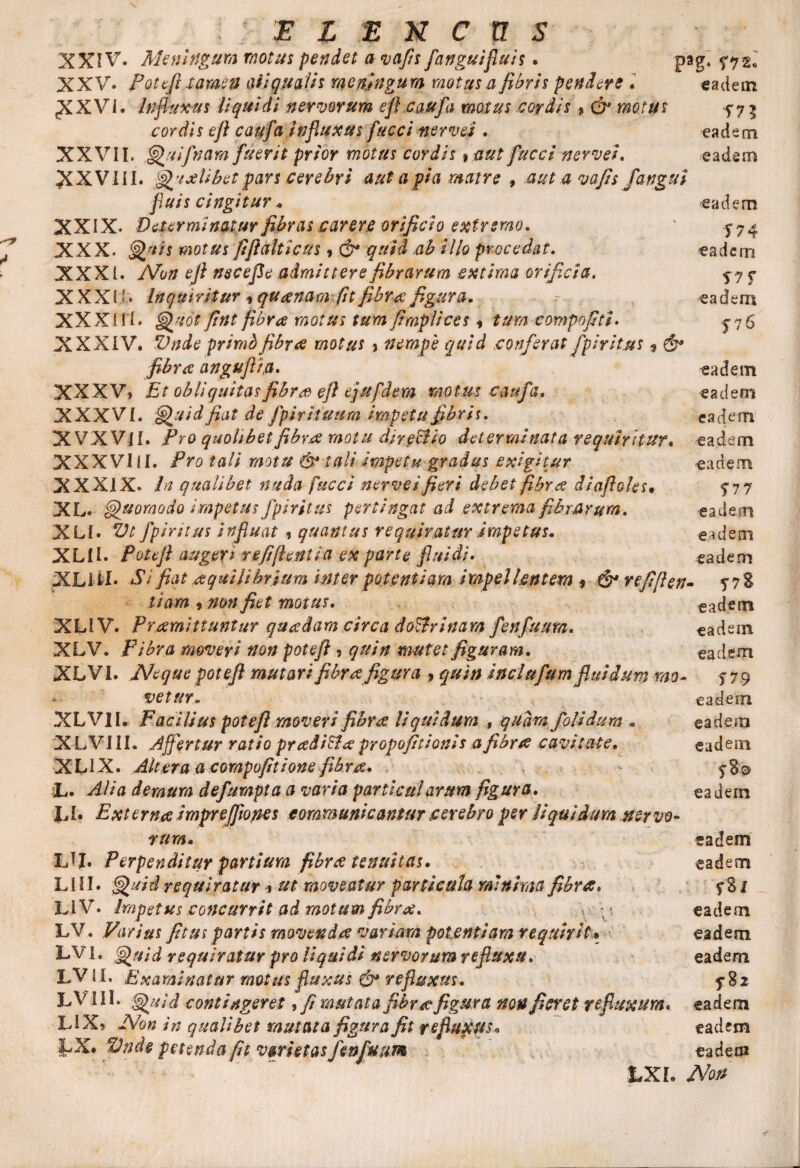 ELENCUS
XXIV. Meningum motus pendet a vasis sanguifluis. pag. 572.
XXV. Potest tamen aliqualis meningum motus a fibris pendere. eadem
XXVI. Influxus liquidi nervorum est causa motus cordis, & motus 573
cordis est causa influxus succi nervei. eadem
XXVII. Quisnam fuerit prior motus cordis, aut succi nervei. eadem
XXVIII. Quælibet pars cerebri aut a pia matre, aut a vasis sangui
fluis cingitur. eadem
XXIX. Determinatur fibras carere orificio extremo. 574
XXX. Quis motus sistalticus, & quid ab illo procedat. eadem
XXXI. Non est necesse admittere fibrarum extima orificia. 575
XXXII. Inquiritur, quænam sit fibræ figura. eadem
XXXIII. Quot sint fibræ motus tum simplices, tum compositi. 576
XXXIV. Vnde primò fibræ motus, nempè quid conferat spiritus, &
fibræ angustia. eadem
XXXV, Et obliquitas fibræ est ejusdem motus causa. eadem
XXXVI. Quid fiat de spirituum impetu fibris. eadem
XVXVII. Pro quolibet fibræ motu directio determinata requiritur. eadem
XXXVIII. Pro tali motu & tali impetu gradus exigitur eadem
XXXIX. In qualibet nuda succi nervei fieri debet fibræ diastoles. 577
XL. Quomodo impetus spiritus pertingat ad extrema fibrarum. eadem
XLI. Vt spiritus influat, quantus requiratur impetus. eadem
XLII. Potest augeri resistentia ex parte fluidi. eadem
XLIII. Si fiat æquilibrium inter potentiam impellentem, & resisten- 578
tiam, non fiet motus. eadem
XLIV. Præmittuntur quædam circa doctrinam sensuum. eadem
XLV. Fibra moveri non potest, quin mutet figuram. eadem
XLVI. Neque potest mutari fibræ figura, quin inclusum fluidum mo- 579
vetur. eadem
XLVII. Facilius potest moveri fibræ liquidum, quàm solidum. eadem
XLVIII. Affertur ratio prædictæ propositionis a fibræ cavitate. eadem
XLIX. Altera a compositione fibræ. 580
L. Alia demum desumpta a varia particularum figura. eadem
LI. Externæ impressiones communicantur cerebro per liquidum nervo-
rum. eadem
LII. Perpenditur partium fibræ tenuitas. eadem
LIII. Quid requiratur, ut moveatur particula minima fibræ. 581
LIV. Impetus concurrit ad motum fibræ. eadem
LV. Varius situs partis movendæ variam potentiam requirit. eadem
LVI. Quid requiratur pro liquidi nervorum refluxu. eadem
LVII. Examinatur motus fluxus & refluxus. 582
LVIII. Quid contingeret, si mutata fibræ figura non fieret refluxum. eadem
LIX, Non in qualibet mutata figura fit refluxus. eadem
LX. Vnde petenda sit varietas sensuum eadem
LXI. Non